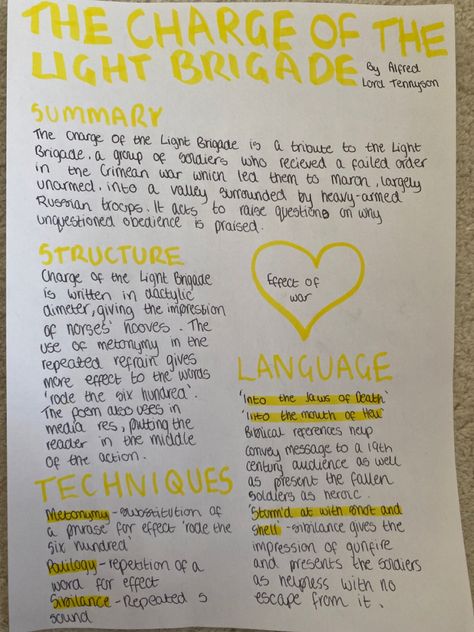 THE CHARGE OF THE
LIGHT BRIGADE
By Alfred
Lord Tennyson
SUMMARY
The Charge of the Light Brigade is a tribute to the Light
Brigade, a group of soldiers who recieved a failed order
in the Crimean war which led them to march, largely
unarmed, into a valley surrounded by heavy-armed
Russian troops. It acts to raise questions on why
unquestioned obedience is praised.
STRUCTURE
Charge of the Light Brigade
is written in dactylic
dimeter, giving the impression
of horses' hooves. The
use of metonymy in the
repeated refrain gives
more effect to the words
'rode the six hundred'.
The poem also uses in
media res, putting the
reader in the middle
of the action.
Effect of
war
LANGUAGE
'Into the Jaws of Death'
'Into the mouth of Hell'
Biblical references help
convey message to a 19th
century audience as well
as present the fallen
soldiers as heroic.
'Storm'd at with shot and
shell' - sibilance gives the
impression of gunfire
and presents the soldiers
as helpness with no
escape from it.
TECHNIQUES
Metonymy - substitution of
a phrase for effect 'rode the
six hundred'
Palilogy - repetition of a
word for effect
Sibilance - Repeated s
sound